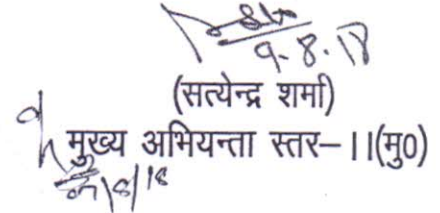 9.8.18
(सत्येन्द्र शर्मा)
मुख्य अभियन्ता स्तर–।।(मु0)